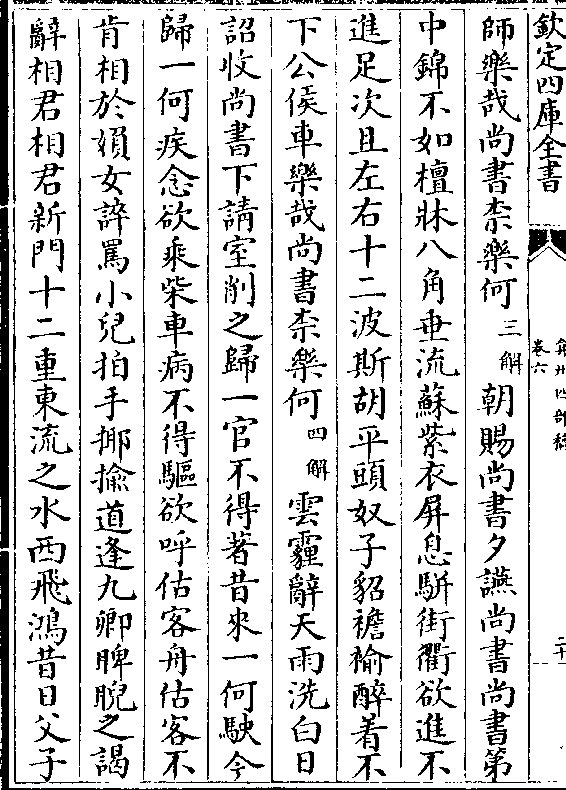 欽定四庫全書
弇州四部稿
卷六
二十
師樂哉尚書柰樂何三解朝賜尚書夕讌尚書尚書第
中錦不如檀牀八角垂流蘇紫衣屏息駢街衢欲進不
進足次且左右十二波斯胡平頭奴子貂襜褕醉着不
下公侯車樂哉尚書柰樂何四解雲霾辭天雨洗白日
詔收尚書下請室削之歸一官不得著昔來一何駃今
歸一何疾念欲乘柴車病不得驅欲呼估客舟估客不
肯相於媍女誶罵小兒拍手揶揄道逢九卿睥睨之謁
辭相君相君新門十二重東流之水西飛鴻昔日父子